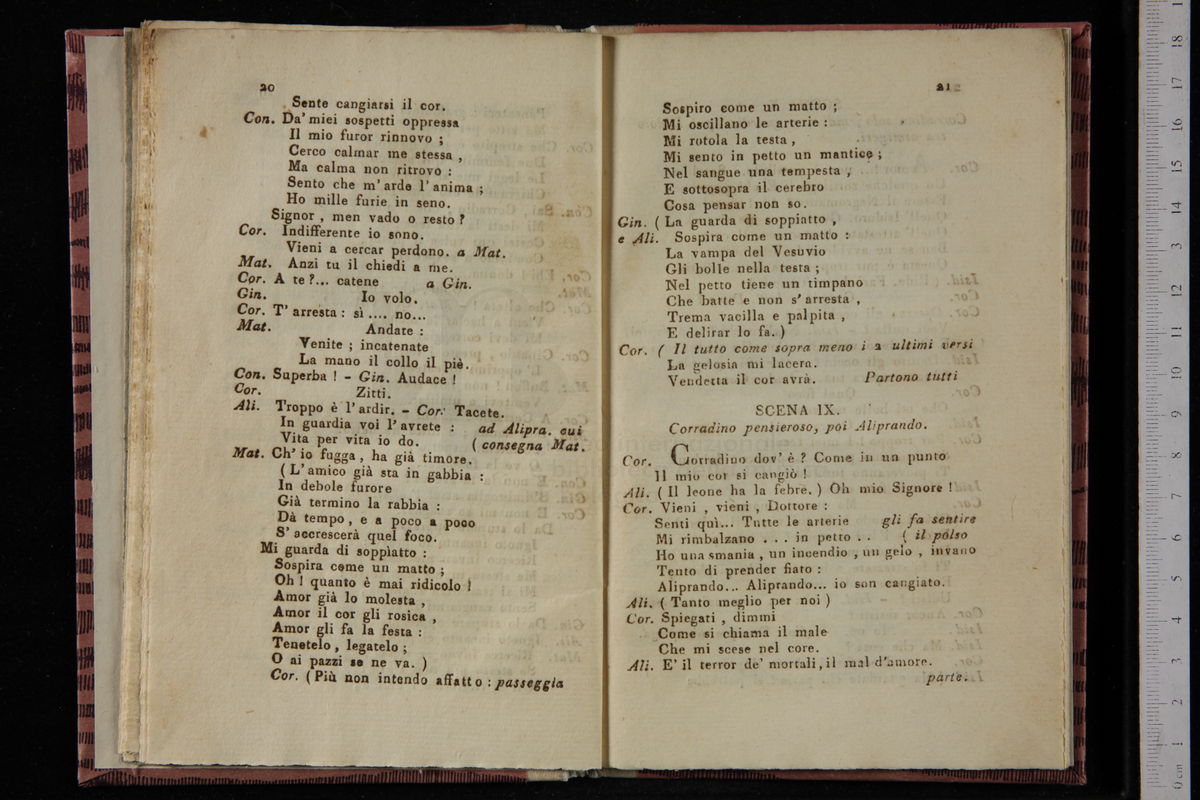 20
Sente cangiarsi il cor.
Con. Da' miei sospetti oppressa
Il mio furor rinnovo ;
Cerco calmar me stessa ,
Ma calma non ritrovo :
Sento che m' arde l' anima ;
Ho mille furie in seno.
Signor , men vado o resto ?
Cor. Indifferente io sono.
Vieni a cercar perdono. a Mat.
Mat. Anzi tu il chiedi a me.
Cor. A te ?... catene a Gin.
Gin. Io volo.
Cor. T' arresta : sì .... no...
Mat. Andate :
Venite ; incatenate
La mano il collo il piè.
Con. Superba ! - Gin. Audace !
Cor. Zitti.
Ali. Troppo è l' ardir. - Cor. Tacete.
In guardia voi l' avrete : ad Alipra. cui
Vita per vita io do. ( consegna Mat.
Mat. Ch' io fugga , ha già timore.
( L' amico già sta in gabbia :
In debole furore
Già termino la rabbia :
Dà tempo , e a poco a poco
S' accrescerà quel foco.
Mi guarda di soppiatto :
Sospira come un matto ;
Oh ! quanto è mai ridicolo !
Amor già lo molesta ,
Amor il cor gli rosica ,
Amor gli fa la festa :
Tenetelo , legatelo ;
O ai pazzi se ne va. )
Cor. ( Più non intendo affatto : passeggia
21
Sospiro come un matto ;
Mi oscillano le arterie :
Mi rotola la testa ,
Mi sento in petto un mantice ;
Nel sangue una tempesta ,
E sottosopra il cerebro
Cosa pensar non so.
Gin. ( La guarda di soppiatto ,
e Ali. Sospira come un matto :
La vampa del Vesuvio
Gli bolle nella testa ;
Nel petto tiene un timpano
Che batte e non s' arresta ,
Trema vacilla e palpita ,
E delirar lo fa. )
Cor. ( Il tutto come sopra meno i 2 ultimi versi
La gelosia mi lacera.
Vendetta il cor avrà. Partono tutti
SCENA IX.
Corradino pensieroso, poi Aliprando.
Cor. Corradino dov' è ? Come in un punto
Il mio cor si cangiò !
Ali. ( Il leone ha la febre. ) Oh mio Signore !
Cor. Vieni , vieni , Dottore :
Senti quì... Tutte le arterie gli fa sentire
Mi rimbalzano . . . in petro . . ( il polso
Ho una smania , un incendio , un gelo , invano
Tento di prender fiato :
Aliprando... Aliprando... io son cangiato.
Ali. ( Tanto meglio per noi )
Cor. Spiegati , dimmi
Come si chiama il male
Che mi scese nel core.
Ali. E' il terror de' mortali, il mal d'amore.
parte.
0 cm 1 2 3 4 5 6 7 8 9 10 11 12 13 14 15 16 17 18